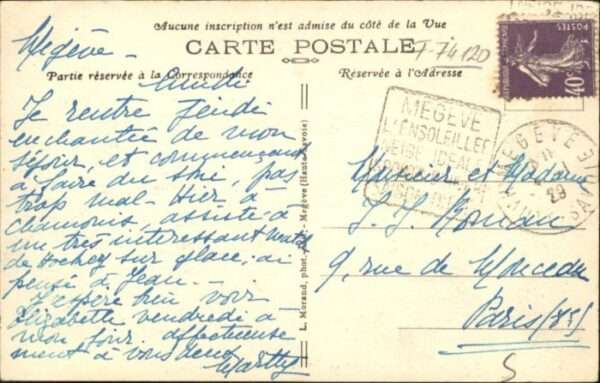 Aucune inscription n'est admise du côté de la Vue
CARTE POSTALE
Partie réservée à la Correspondance
Réservée à l'Adresse
Megève -
Lundi
Je rentre Jeudi
enchantée de mon
séjour, et commençant
à faire du ski, pas
trop mal - Hier à
Chamonix assisté à
un très intéressant match
de hockey sur glace, ai
pensé à Jean -
J'espère bien voir
Elizabeth vendredi à
mon jour. affectueuse
ment à vous deux
L. Morand, phot. - Megève (Haute-Savoie)
POSTES
40c
T 74120
MEGÈVE
L'ENSOLEILLEE
NEIGE IDEALE
MEGEVE
29
Monsieur et Madame
9, rue de Monceau
Paris (8e)
5